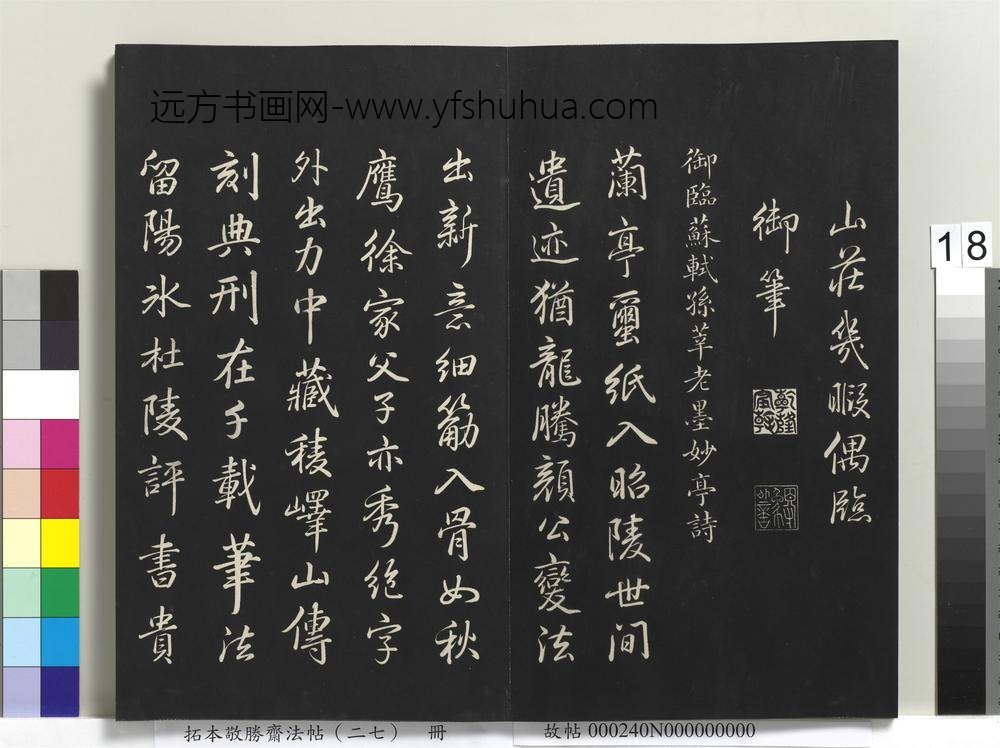 远方书画网-www.yfshuhua.com
山莊幾暇偶臨
御筆
乾隆
宸翰
御臨蘇軾孫莘老墨妙亭詩
蘭亭璽紙入昭陵世间
遺迹猶龍騰顏公變法
出新意細筋入骨如秋
鷹徐家父子亦秀絕字
外出力中藏稜嶧山傳
刻典刑在千載筆法
留陽冰杜陵評書貴
18
拓本敬勝齋法帖（二七） 冊
故帖 000240N000000000